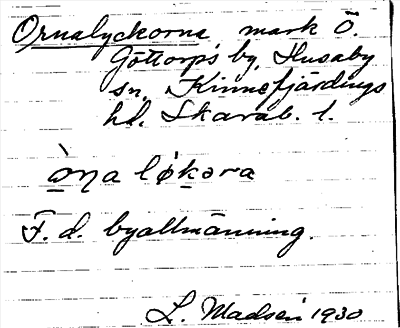 Ornalyckorna mark Ö.
Göttorps by, Husaby
sn, Kinnefjärdings
hd. Skarab. l.
ò̱ŋa lǿḵəra
F. d. byallmänning.
L. Madsén 1930